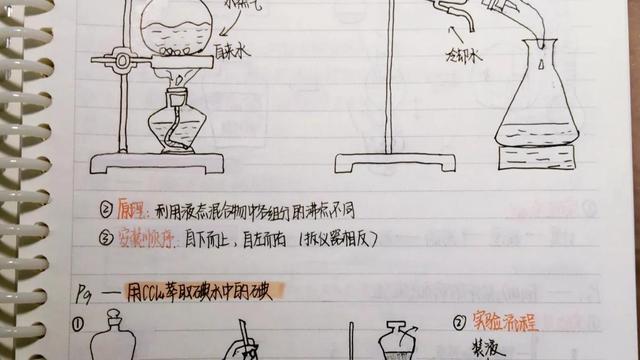 水蒸气
自来水
冷却水
② 原理：利用液态混合物中各组分的沸点不同
③ 安装顺序：自下而上，自左而右（拆仪器相反）
P9 — 用CCl4萃取碘水中的碘
①
② 实验流程
装液